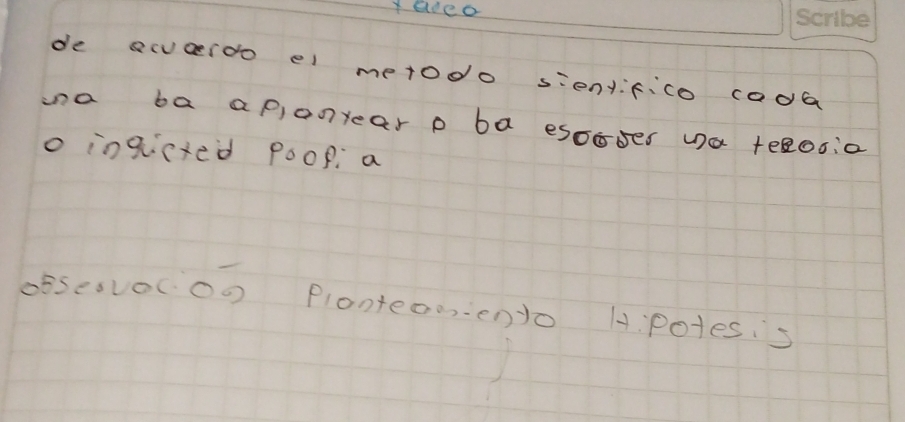 Tarea
Scribe
de acuerdo el metodo sientifico cada
una ba a plantear o ba escojer una teroria
o inquicted poopia
observación Planteamiento Hipotesis